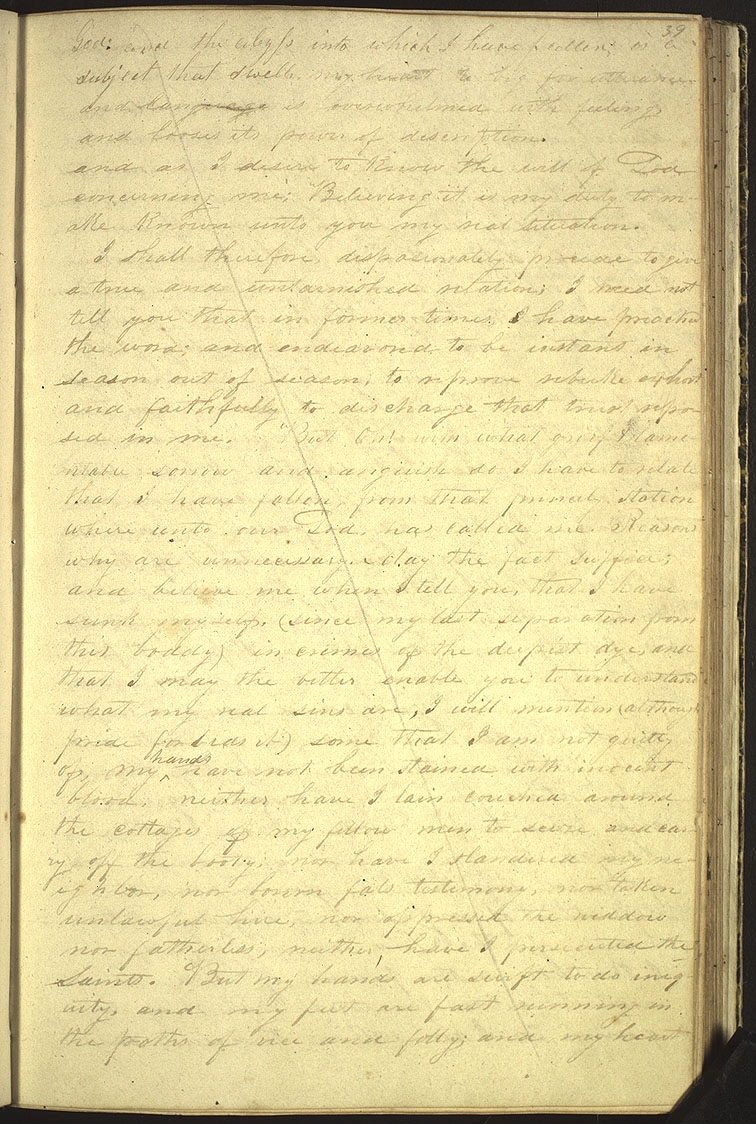 39
God: and the abyss into which I have fallen, is a
subject that swells my heart to big for utterance
and language is overwhelmed with feeling
and looses its power of description.
and as I desire to know the will of God
concerning me; Believing it is my duty to m-
ake known unto you my real situation.
I shall therefore, dispasionately procede to give
a true and untarnished relation; I need not
tell you that in former times, I have preached
the word; and endeavored to be instant in
season out of season, to reprove rebuke exhort
and faithfully to discharge that trust repo-
sed in me. But Oh! with what grief & lame-
ntable sorrow and anguish do I have to relate
that I have fallen, from that princely station
where unto our God has called me. Reasons
why are unnecessary. May the fact suffice;
and believe me when I tell you, that I have
sunk myself, (since my last separation from
this boddy) in crimes of the deepest dye, and
that I may the better enable you to understand
what my real sins are, I will mention (although
pride forbids it) some that I am not guilty
of, my hands have not been stained with inocent
blood; neither have I lain couched around
the cottages of my fellow men to seize and car-
ry off the booty; nor have I slandered my ne-
ighbor, nor bourn fals testimony, nor taken
unlawful hire, nor oppressed the widdow
nor fatherless, neither have I persecuted the
Saints. But my hands are swift to do iniq-
uity, and my feet are fast running in
the paths of vice and folly; and my heart